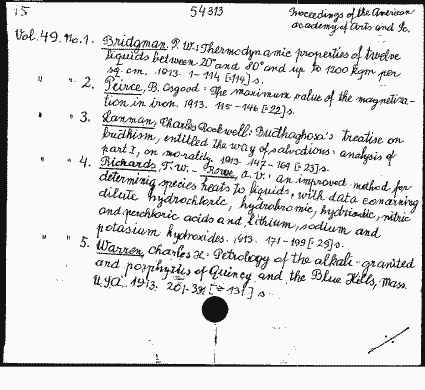 15 54313 Proceedings of the American
academy of Arts and Sc.
Vol. 49. No. 1. Bridgman, P. W.: Thermodynamic properties of twelve
liquids between 20° and 80° and up to 1200 kgm per
sq. cm. 1913. 1-114 [=114] s.
" " 2. Peirce, B. Osgood: The maximum value of the magnetiza-
tion in iron. 1913. 115-146 [=22] s.
" " 3. Lanman, Charles Rockwell: Buddhaghosa's treatise on
budhism, entitled the way of salvations: analysis of
part I, on morality. 1913. 147-169 [=23] s.
" " 4. Richards, T. W. - Rowe, a. v.: an improved method for
determining species heats to liquids, with data concerning
dilute hydrochloric, hydrobromic, hydriodic, nitric
and perchloric acids and lithium, sodium and
potasium hydroxides. 1913. 171-199 [=29] s.
" " 5. Warren, Charles H: Petrology of the alkali-granited
and porphyrtis of Quincy and the Blue Hills, Mass.
U.S.A. 1913. 201-331 [=131] s.